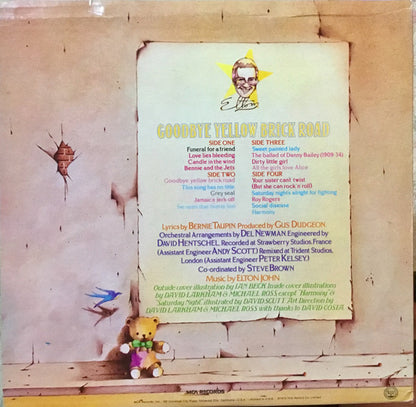 Elton
GOODBYE YELLOW BRICK ROAD
SIDE ONE
Funeral for a friend
Love lies bleeding
Candle in the wind
Bennie and the Jets
SIDE TWO
Goodbye yellow brick road
This song has no title
Grey seal
Jamaica jerk off
I've seen that movie too
SIDE THREE
Sweet painted lady
The ballad of Danny Bailey (1909-34)
Dirty little girl
All the girls love Alice
SIDE FOUR
Your sister cant twist
(But she can rock 'n roll)
Saturday nights alright for fighting
Roy Rogers
Social disease
Harmony
Lyrics by BERNIE TAUPIN Produced by GUS DUDGEON
Orchestral Arrangements by DEL NEWMAN Engineered by
DAVID HENTSCHEL. Recorded at Strawberry Studios. France
(Assistant Engineer ANDY SCOTT) Remixed at Trident Studios,
London (Assistant Engineer PETER KELSEY)
Co-ordinated by STEVE BROWN
Music by ELTON JOHN
Outside cover illustration by IAN BECK Inside cover illustrations
by DAVID LARKHAM & MICHAEL ROSS except "Harmony" &
"Saturday Night" illustrated by DAVID SCUTT Art Direction by
DAVID LARKHAM & MICHAEL ROSS with thanks to DAVID COSTA
MCA RECORDS